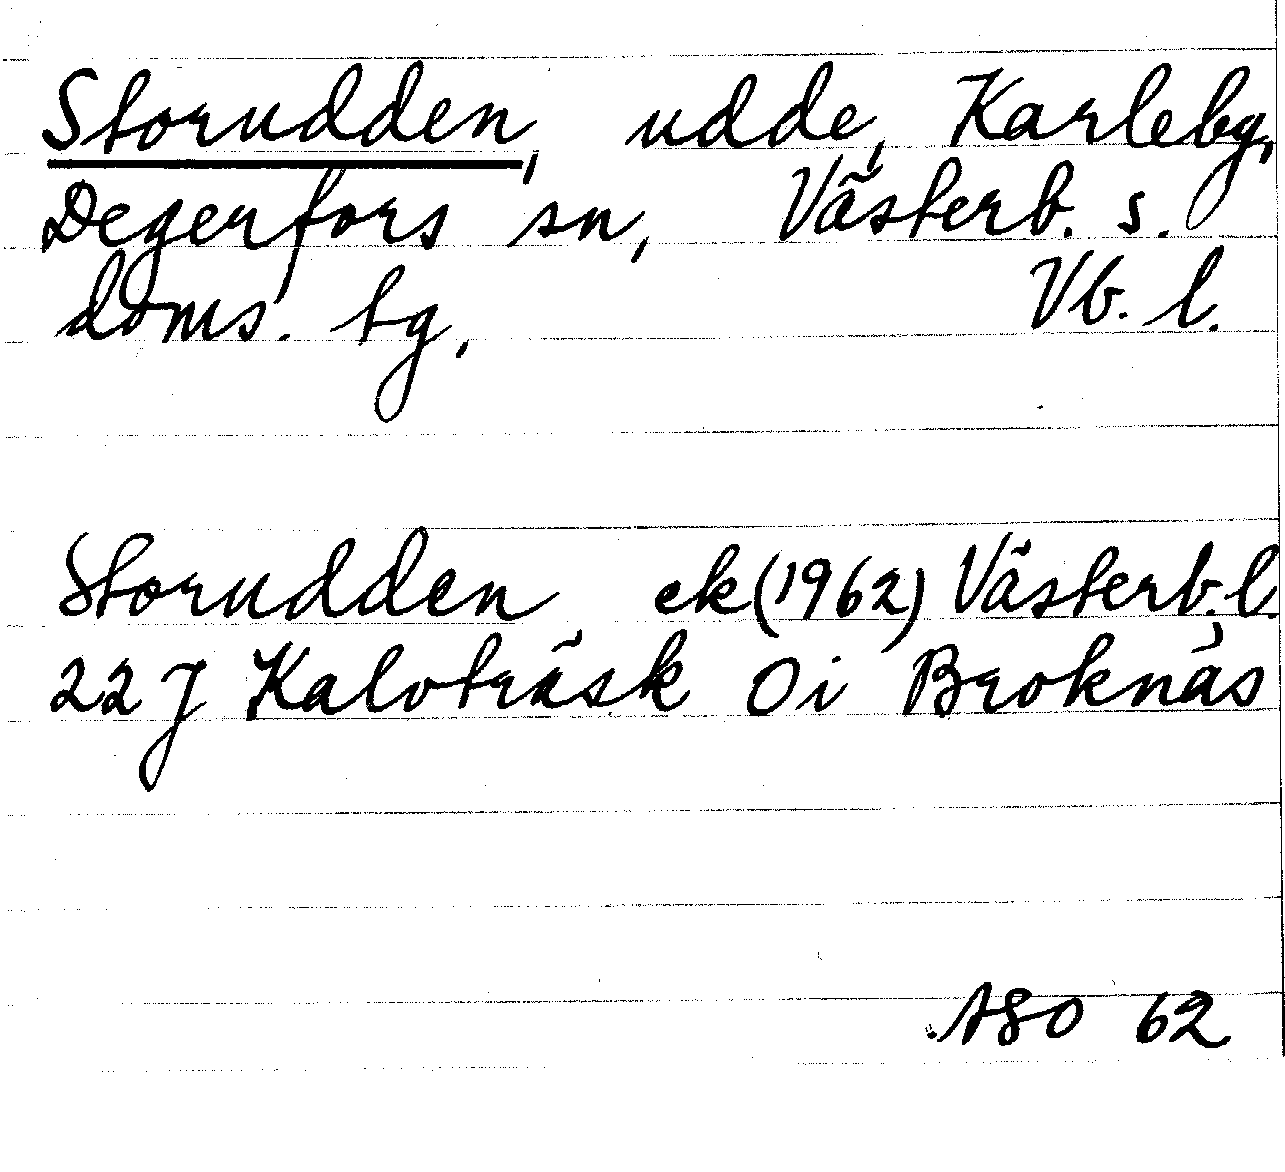 Storudden, udde, Karleby,
Degerfors sn, Västerb. s.
doms. bg, Vb. l.
Storudden ek (1962) Västerb. l.
22 J Kalvträsk 0i Broknäs
ASO 62